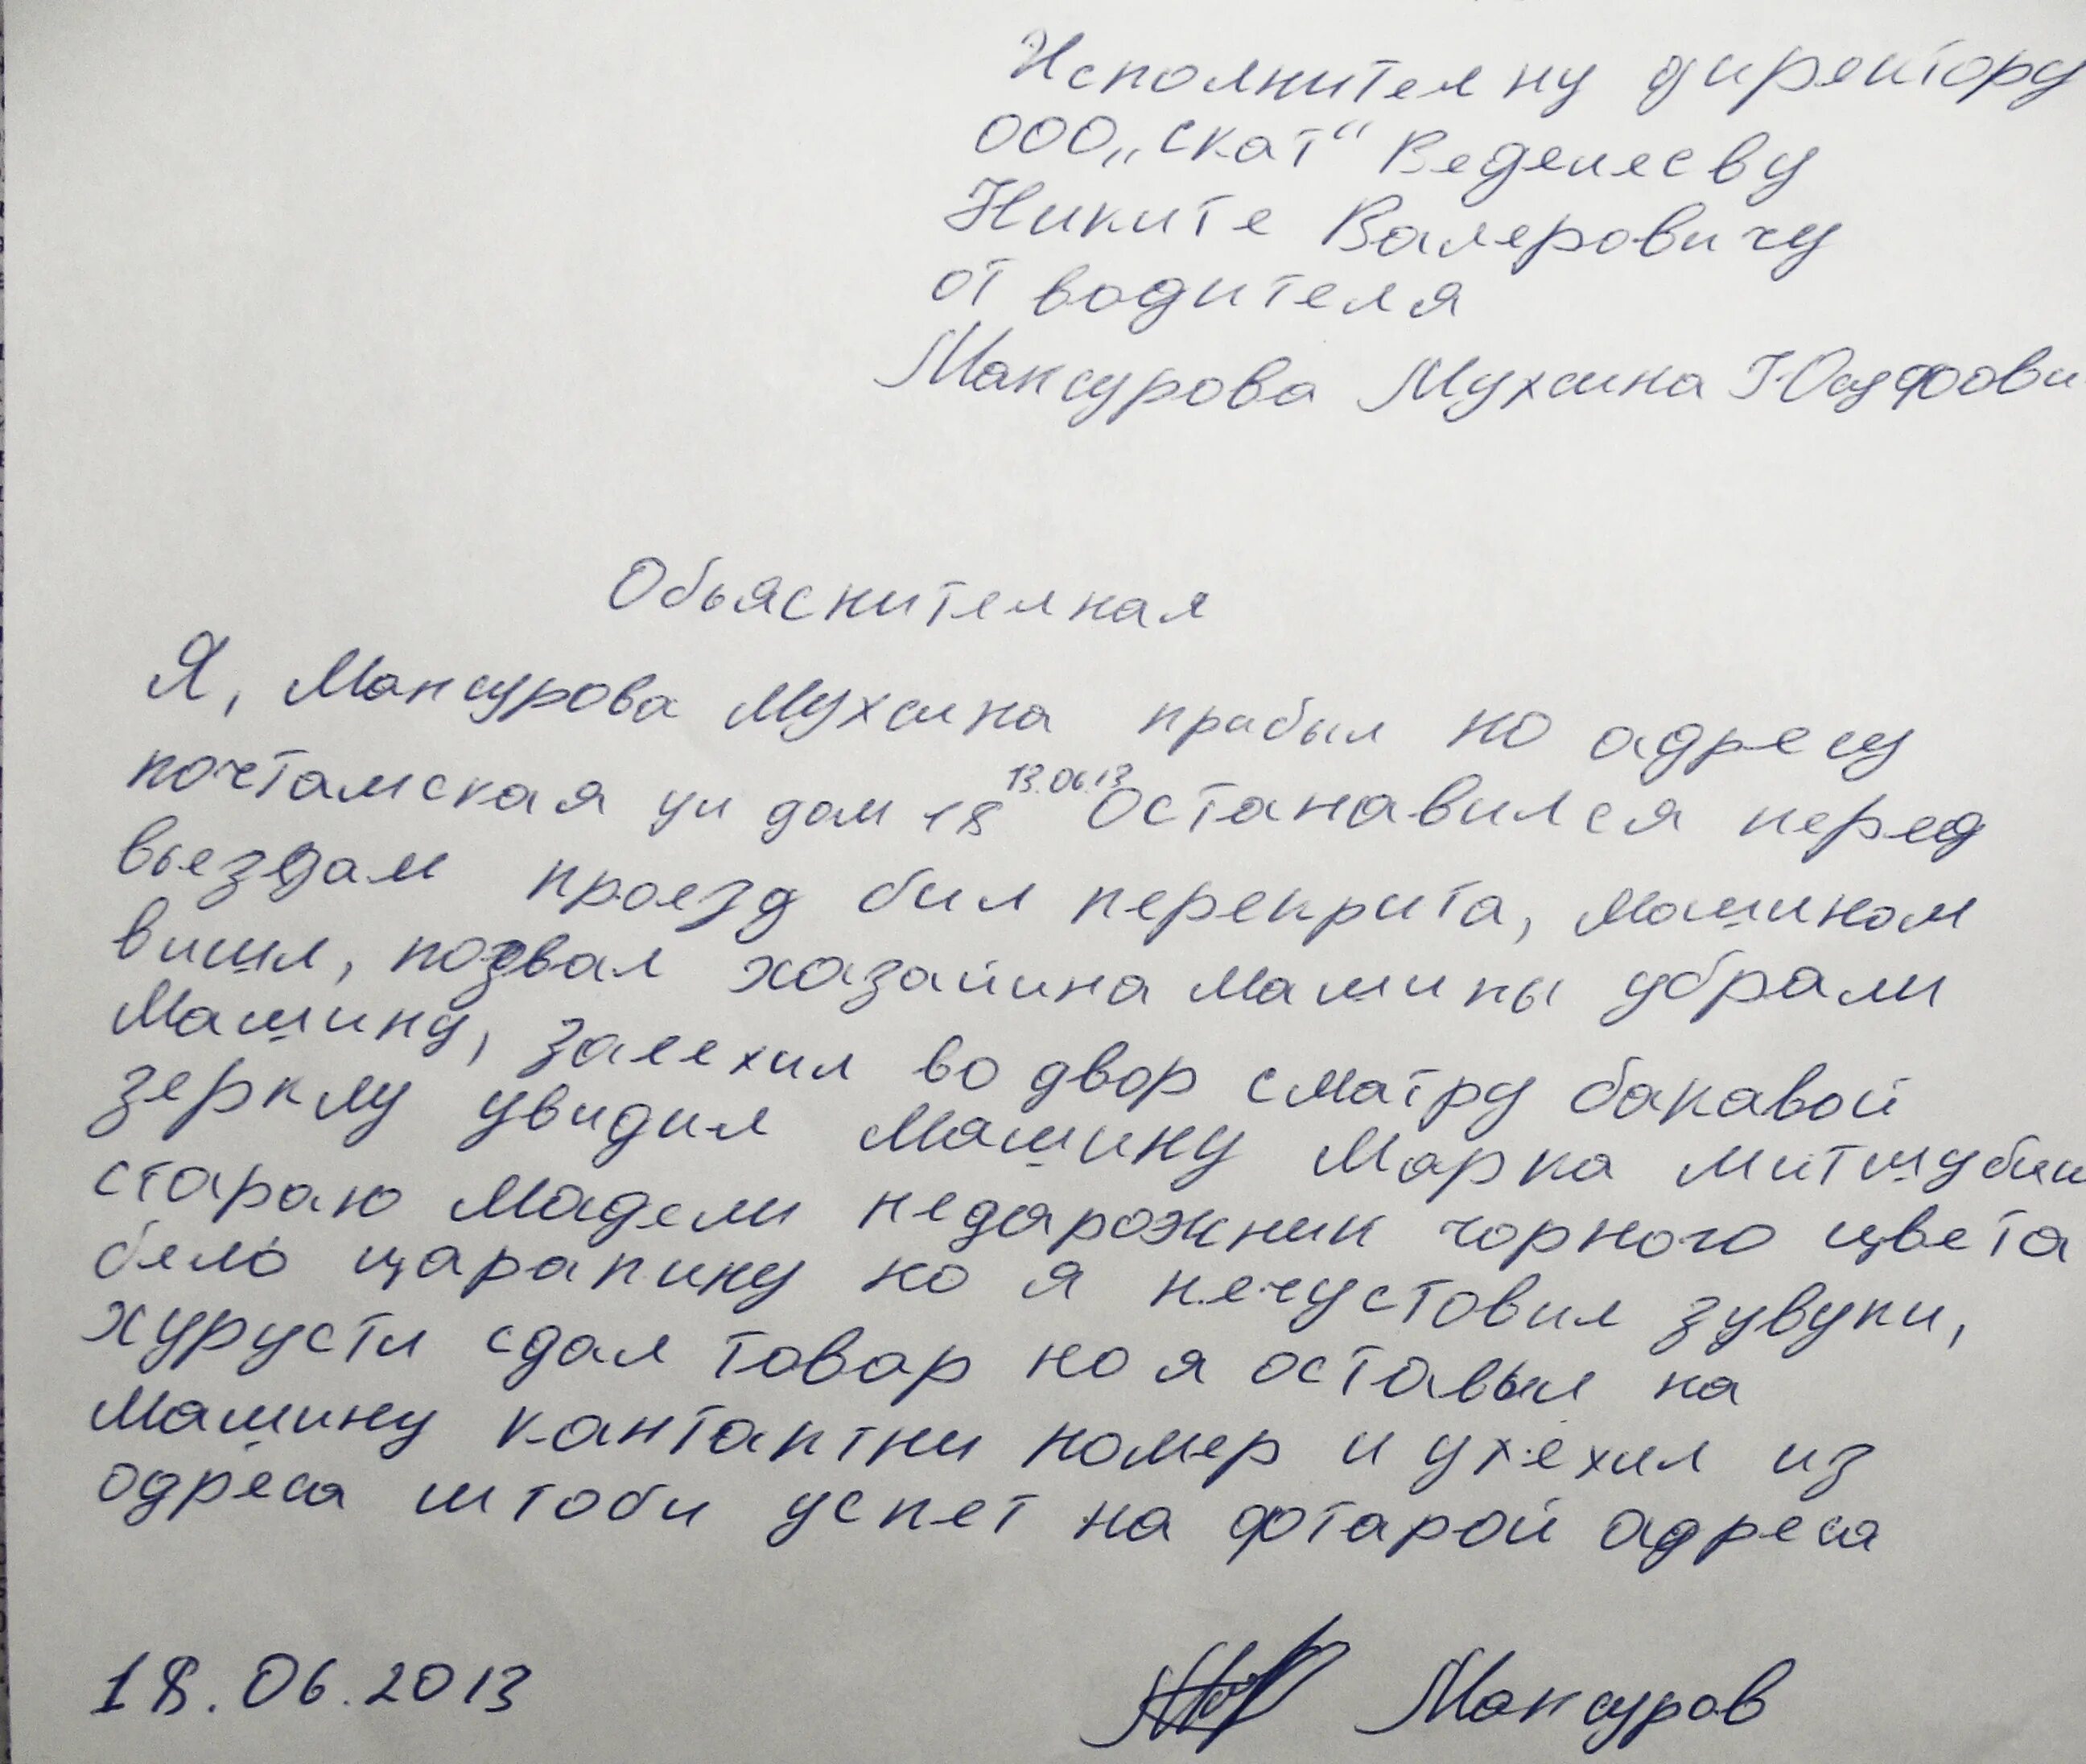 Исполнителну директору
ООО „Скат“ Веденееву
Никите Валеровичу
от водителя
Мансурова Мухсина Юсуфови
Обьяснителная
Я, Мансурова Мухсина прибыл по адресу
почтамская ул дом 18 13.06.13 Останавился перед
выездам проезд бил перекрита, машином
вишл, позвал хазайина машины убрали
Машину, залехил во двор сматру бакавой
зерклу увидил Машину Марка митшубиш
стараю мадели недарожник чорного цвета
бело царапину но я нечуствил зувуки,
хурусти сдал товар но я оставыл на
машину кантактни номер и ухехил из
адреса штоби успет на фтарой адреса
18.06.2013
Мансуров